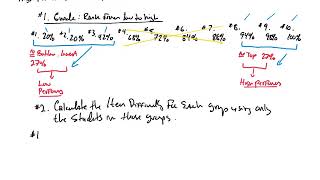 #1. Grade: Rank from low to high
#1. 20% #2. 20% #3. 42% #4. 68% #5. 72% #6. 84% #7. 86% #8. 94% #9. 98% #10. 100%
Bottom Lowest 27%
Top 27%
Low Performers
High Performers
#2. Calculate the Item Difficulty for Each group using only
the Students in those groups.
#1